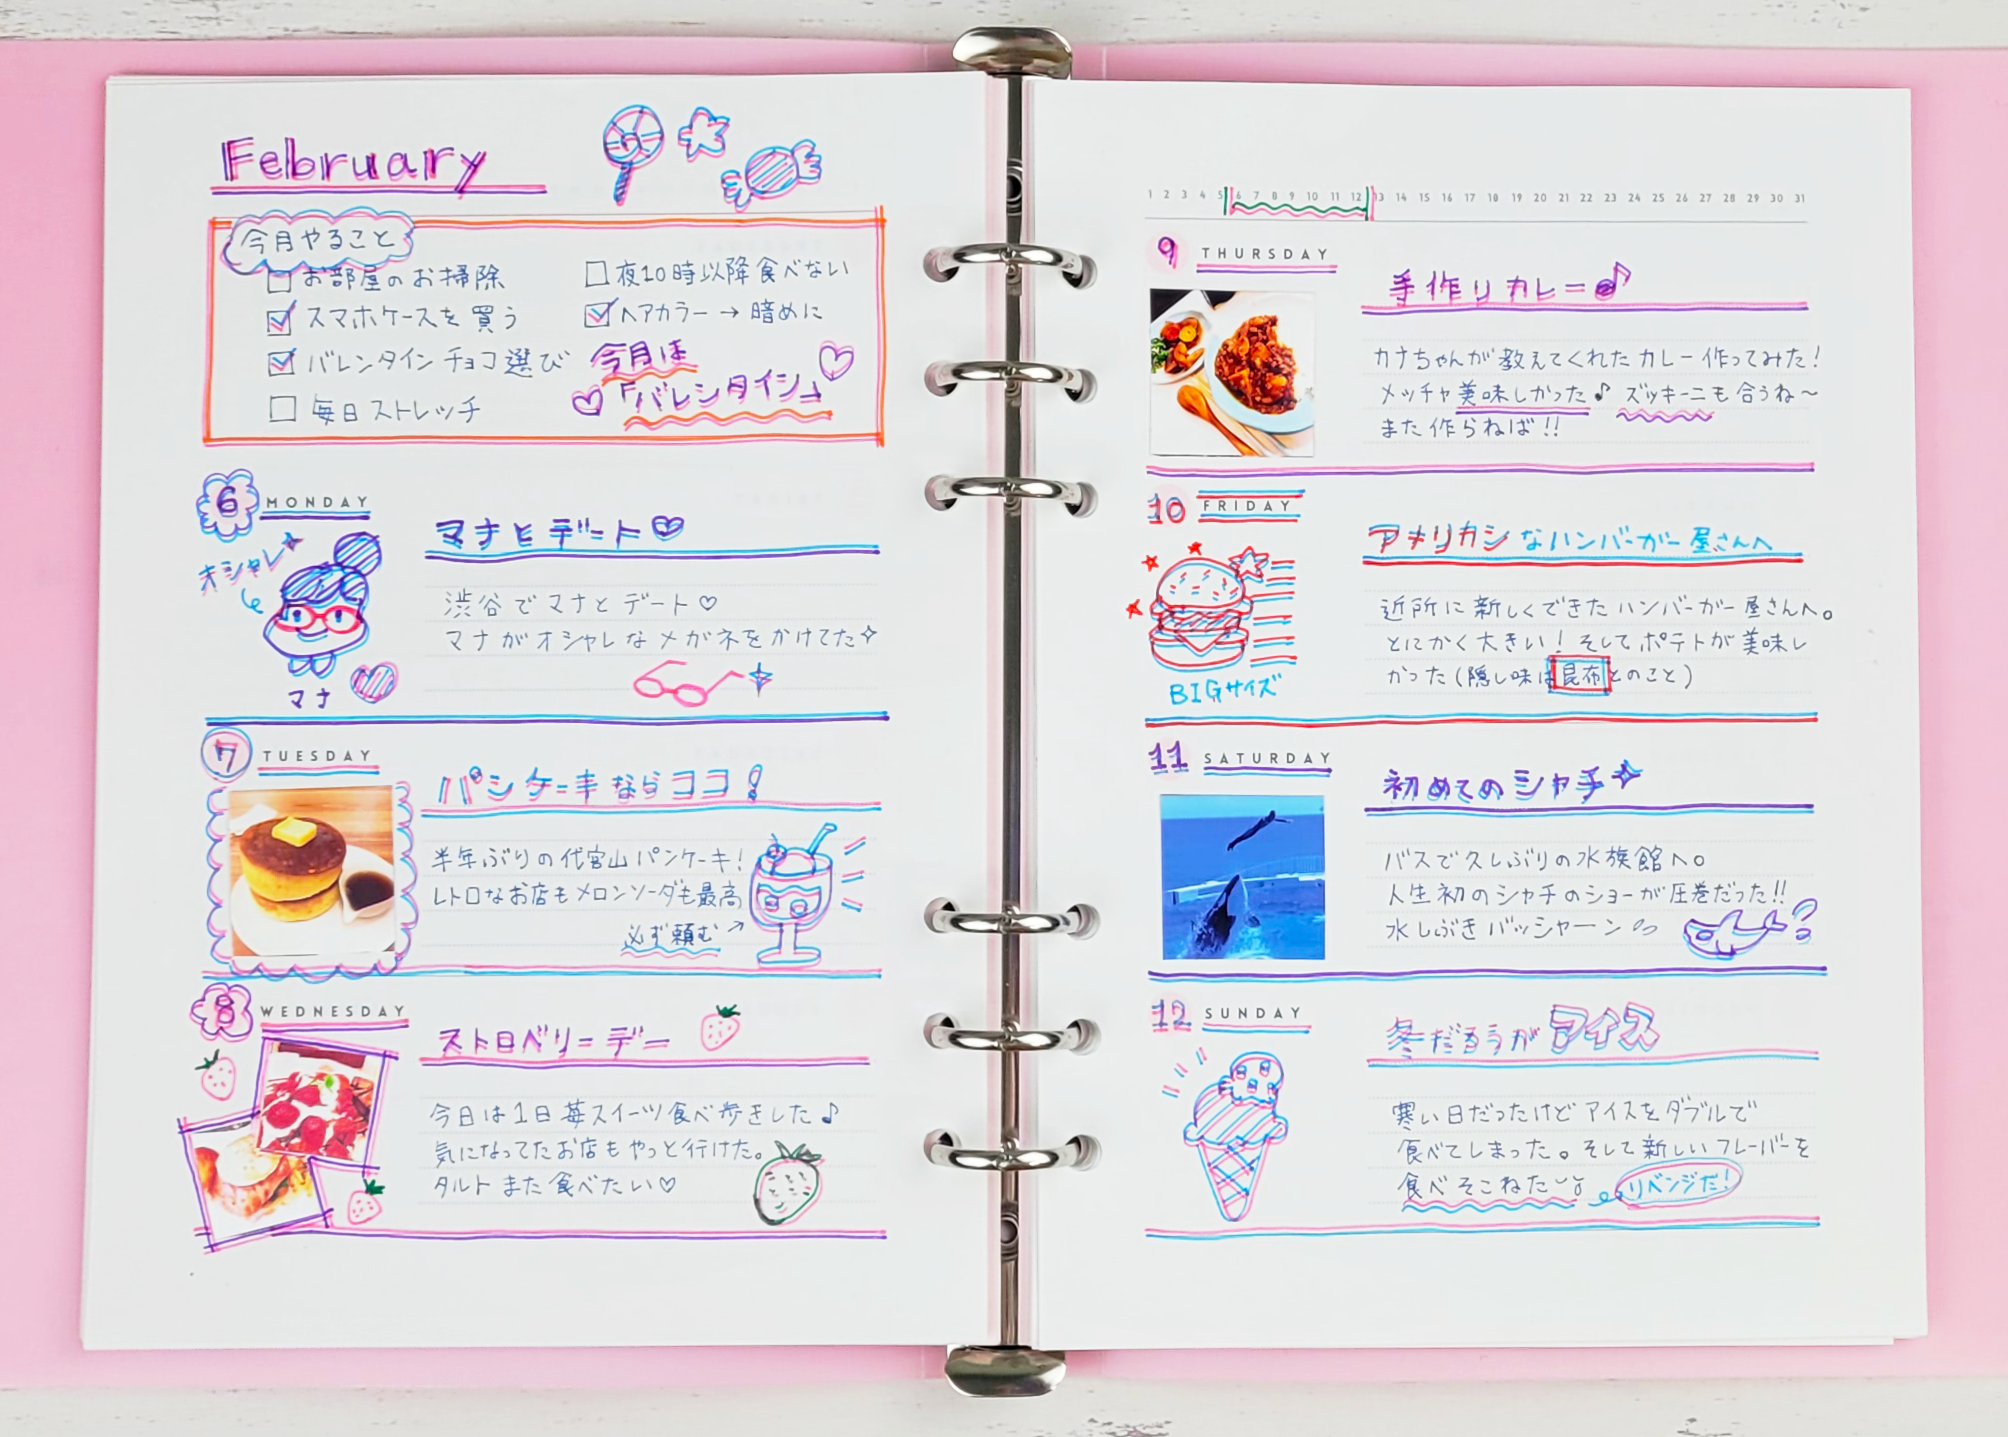 February
今月やること
□お部屋のお掃除
☑スマホケースを買う
☑バレンタインチョコ選び
□毎日ストレッチ
□夜10時以降食べない
☑ヘアカラー→暗めに
今月は
♡「バレンタイン」♡
6 MONDAY
オシャレ
マナ
マナとデート♡
渋谷でマナとデート♡
マナがオシャレなメガネをかけてた✧
7 TUESDAY
パンケーキならココ!
半年ぶりの代官山パンケーキ!
レトロなお店もメロンソーダも最高
必ず頼む→
8 WEDNESDAY
ストロベリーデー
今日は1日苺スイーツ食べ歩きした♪
気になってたお店もやっと行けた。
タルトまた食べたい♡
1 2 3 4 5 6 7 8 9 10 11 12 13 14 15 16 17 18 19 20 21 22 23 24 25 26 27 28 29 30 31
9 THURSDAY
手作りカレー♪
カナちゃんが教えてくれたカレー作ってみた!
メッチャ美味しかった♪ズッキーニも合うね〜
また作らねば!!
10 FRIDAY
BIGサイズ
アメリカンなハンバーガー屋さんへ
近所に新しくできたハンバーガー屋さんへ。
とにかく大きい!そしてポテトが美味し
かった(隠し味は昆布とのこと)
11 SATURDAY
初めてのシャチ✧
バスで久しぶりの水族館へ。
人生初のシャチのショーが圧巻だった!!
水しぶきバッシャーン
12 SUNDAY
冬だろうがアイス
寒い日だったけどアイスをダブルで
食べてしまった。そして新しいフレーバーを
食べそこねた
リベンジだ!